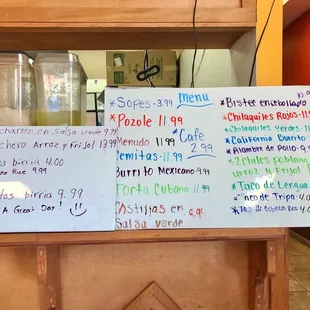 charron en Salsa verde 9.99
chera Arroz y Frijol
os birria 4.00
Rice 9.99
tos birria 9.99
A Great Day!
menu
*Sopes-3.99
*Pozole 11.99
Menudo 11.99
*Cafe
2.99
Cemitas 11.99
Burrito Mexicano 9.99
Torta Cubana 11.99
Castillas en 9.99
Salsa verde
*Bistec encebollado
*Chilaquiles Rojos
*Chilaquiles Verdes
*California Burrito
*Alambre de Pollo
*2 chiles poblano
arroz y Frijol
*Taco de Lengua
*Taco de Tripa 4.00
*Taco de Cabeza Res 4.00